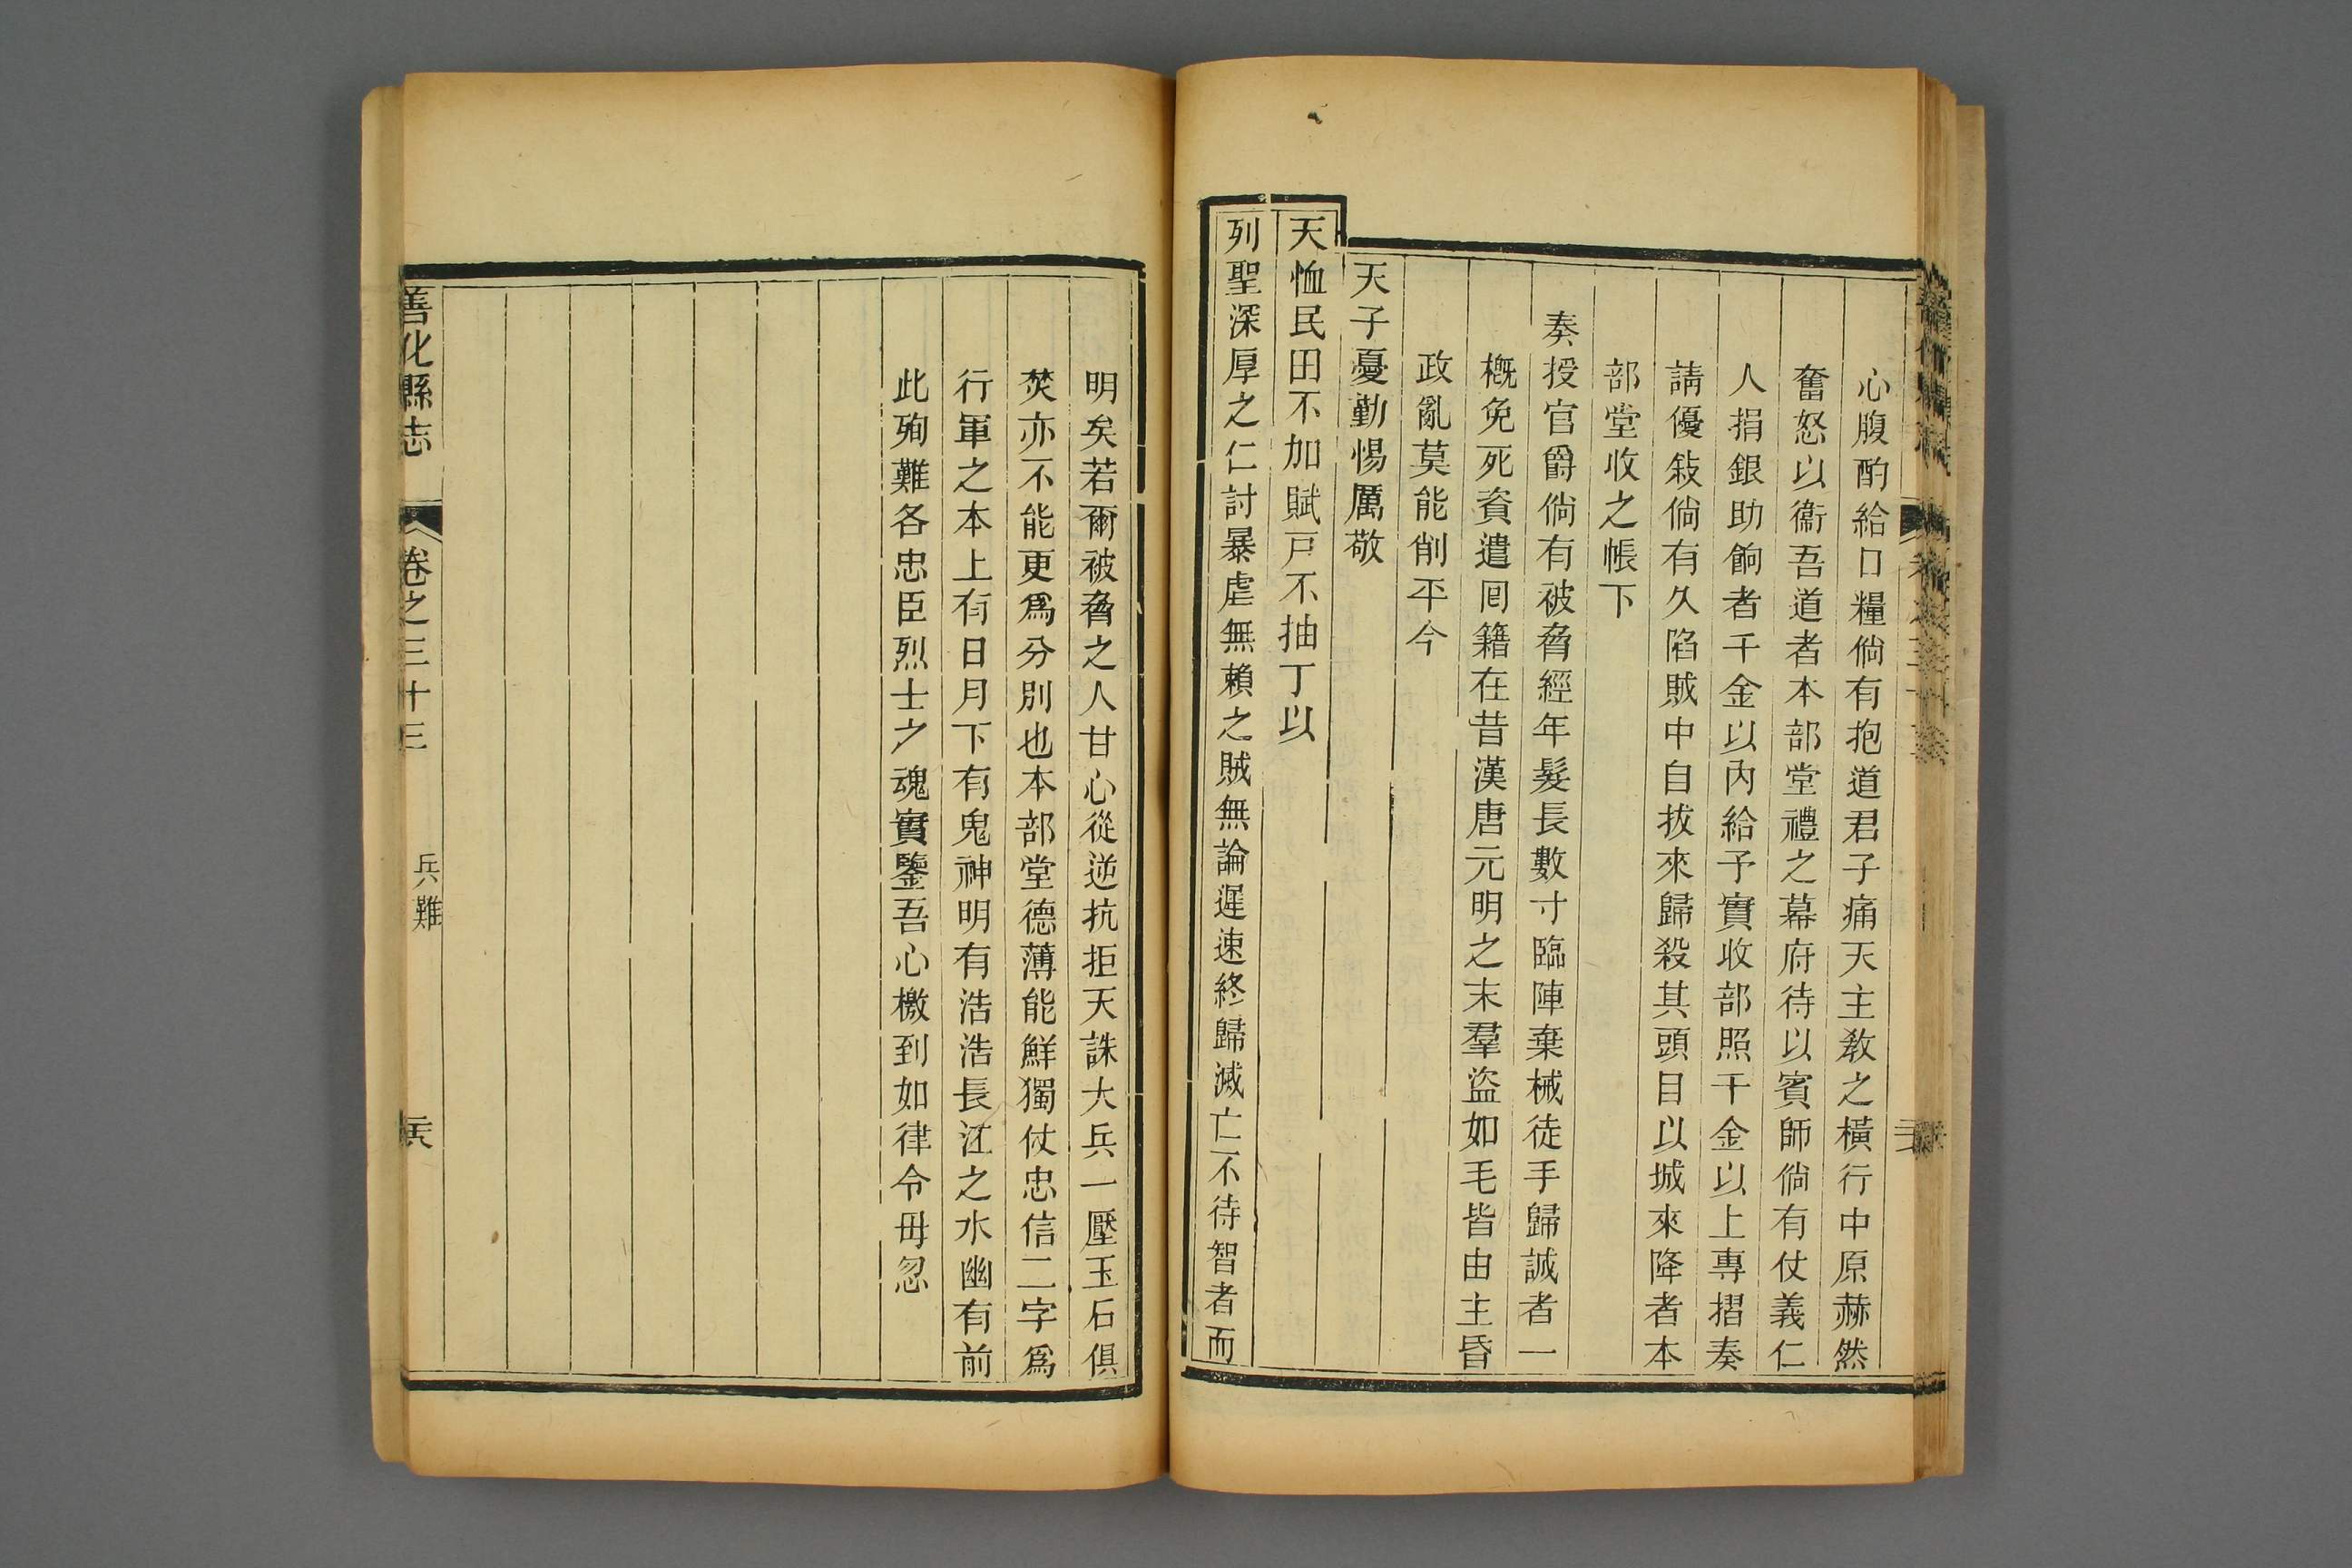 心腹酌給口糧倘有抱道君子痛天主敎之橫行中原赫然
奮怒以衞吾道者本部堂禮之幕府待以賓師倘有仗義仁
人捐銀助餉者千金以內給予實收部照千金以上專摺奏
請優敍倘有久陷賊中自拔來歸殺其頭目以城來降者本
部堂收之帳下
奏授官爵倘有被脅經年髮長數寸臨陣棄械徒手歸誠者一
槪免死資遣囘籍在昔漢唐元明之末羣盜如毛皆由主昏
政亂莫能削平今
天子憂勤惕厲敬
天恤民田不加賦戸不抽丁以
列聖深厚之仁討暴虐無賴之賊無論遲速終歸滅亡不待智者而
明矣若爾被脅之人甘心從逆抗拒天誅大兵一壓玉石俱
焚亦不能更爲分別也本部堂德薄能鮮獨仗忠信二字爲
行軍之本上有日月下有鬼神明有浩浩長江之水幽有前
此殉難各忠臣烈士之魂實鑒吾心檄到如律令毋忽
善化縣志
卷之三十三
兵難